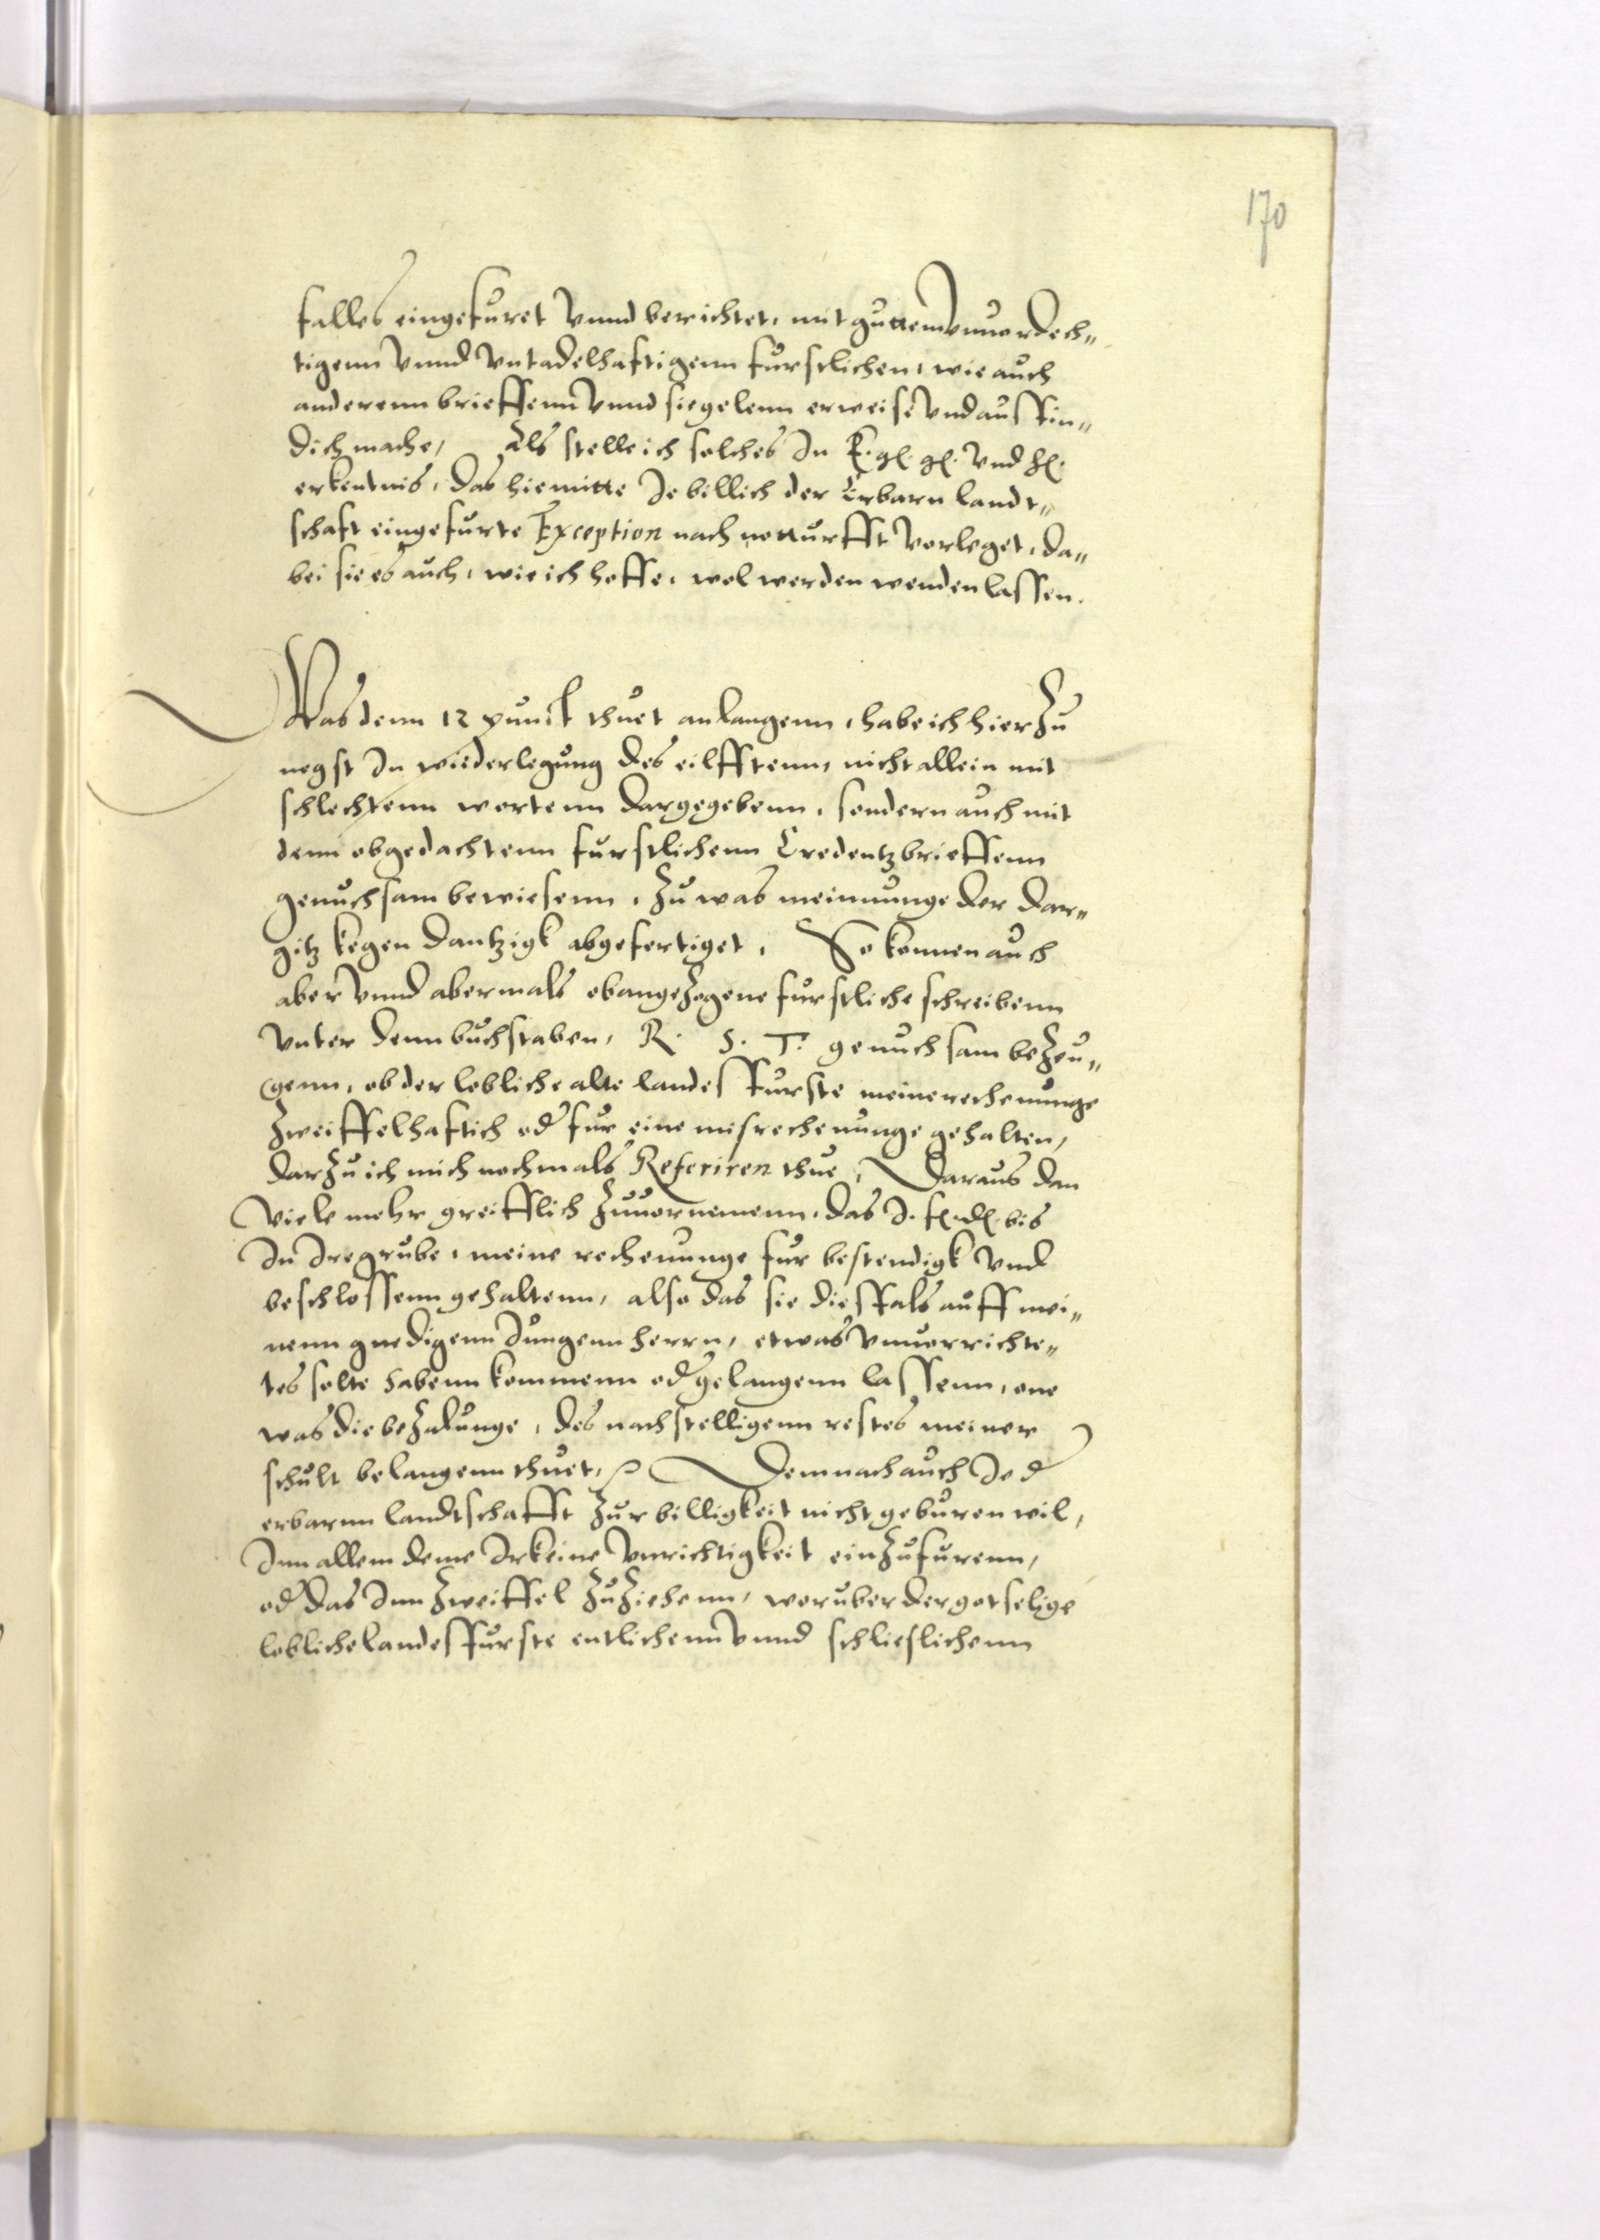 170
falles eingefuret vnnd berichtet, mit guttem vnuordech„
tigenn vnnd vntadelhaftigenn furstlichen, wie auch
anderenn brieffenn vnnd siegelenn erweise vnd ausfin„
dich mache, Als stelle ich solches Jn E. gl. gl. vnd hl.
erkentnis, das hiemitte Je billich der Erbarn landt„
schaft eingefurte Exception nach notturfft vorleget, da„
bei sie es auch, wie ich hoffe, wol werden wenden lassen.
Was denn 12 punct thuet anlangenn, habe ich hierzu
negst Jn wiederlegung des eilfftenn, nicht allein mit
schlechtenn wortenn dargegebenn, sondern auch mit
denn obgedachtenn furstlichenn Credentzbrieffenn
genuchsam bewiesenn, zu was meinunge der Dar„
gitz kegen Dantzigk abgefertiget, So konnen auch
aber vnnd abermals obangezogene furstliche schreibenn
vnter denn buchstaben, R. S. T. genuchsam bezeu„
genn, ob der lobliche alte landesfurste meine rechenunge
zweiffelhaftich od fur eine misrechenunge gehalten,
darzu ich mich nochmals Referiren thue, Daraus dan
viele mehr greifflich zuuornemenn, das J. fl. dl. bis
Jn Jre grube, meine rechenunge fur bestendigk vnd
beschlossenn gehaltenn, also das sie diesfals auff mei„
nenn gnedigenn Jungenn herrn, etwas vnuorrichte„
tes solte habenn kommenn od gelangenn lassenn, one
was die bezalunge, des nachstelligenn restes meiner
schult belangenn thuet, Demnach auch Je d
erbarnn landtschafft zur billigkeit nicht geburen wil,
Jnn allem deme Jrkeine vnrichtigkeit einzufurenn,
od das Jnn zweiffel zuziehenn, woruber der gotselige
lobliche landesfurste entlichenn vnnd schlieslichenn